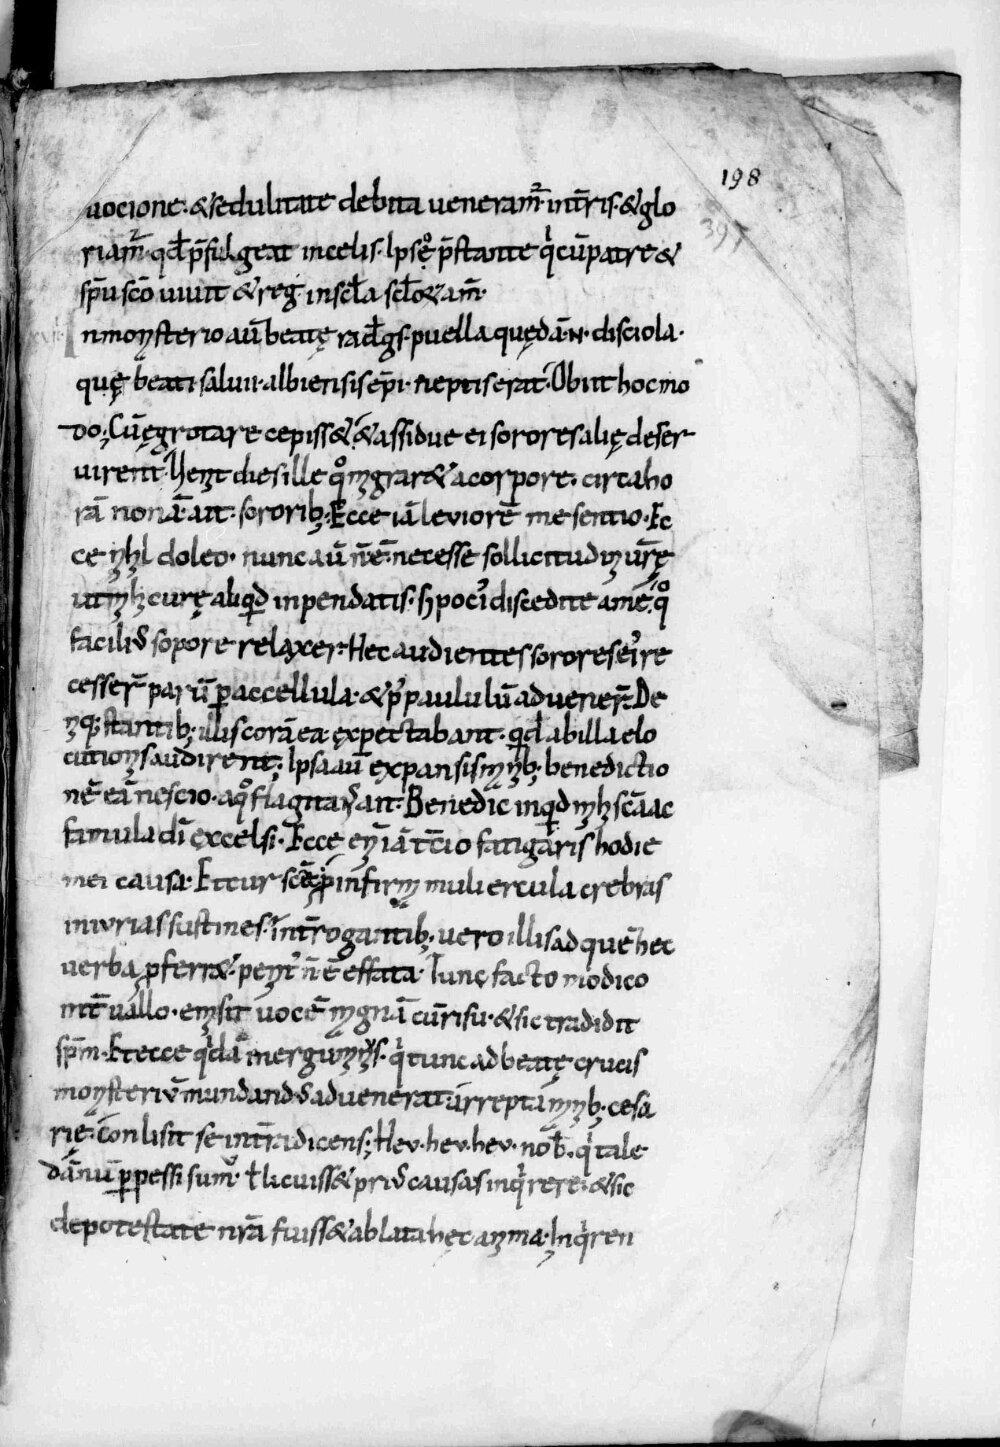 198
397
uocione · & sedulitate debita ueneram᷑ · int̄ris · & glo
riam᷑ · qđ p̄fulgeat in celis · Ipse q̊ p̄stante qͥ cū patre &
sp̄u scō uiuit & reḡ in scła scłoꝝ am̄ ·
In monysterio aū beatę radḡs · puella quędā · N · disciola ·
quę beati saluii · albiensis ep̄i · neptis erat · Obiit hoc mo
do; Cū ęgrotare cepiss& · & assidue ei sorores alię deser
uirent · Uenit dies ille qͦ migrar& a corpore · circa ho
rā nonā · ait · sororib; · Ecce iā leuiorē me sentio · Ec
ce nihil doleo · nunc aū n̄ ē · necesse sollicitudini ur̄ę
ut mihi curę aliqd inpendatis · s; pocͥ discedite a me · qͦ
facili᷒ sopore relaxer · Hec audientes sorores ei᷒ re
cesser̄ parū p̱ accellula · & p᷒ paululū aduener̄ · De
niq; stantib; · illis corā ea · expectabant · qd ab illa elo
cutionis audirent; Ipsa aū expansis manib; · benedictio
nē eā nescio · a qͦ flagitās ait · Benedic inqd mihi scā ac
famula dī excelsi · Ecce eni iā t̄cio fatigaris hodie
mei causa · Et cur scā p̱ infirma muliercula crebras
iniurias sustines · Int̄rogantib; · uero illis ad quē hec
uerba p̱ferr& · penit᷒ n̄ ē effata · Tunc facto modico
int̄uallo · emisit uocē magnā cū risu · & sic tradidit
sp̄m · Et ecce qͥdā inerguminus · qͥ tunc ad beatę crucis
monysteriū mundand᷒ aduenerat · arrepta manib; · cesa
rie · conlisit se int̄ra dicens; Heu · heu · heu · nob̄ · qͥ tale
dānū p̱pessi sum᷒ · ł licuiss& pri᷒ causas inqͥrere · & sic
de potestate nr̄a fuiss& ablata hęc anima · Inqͥren